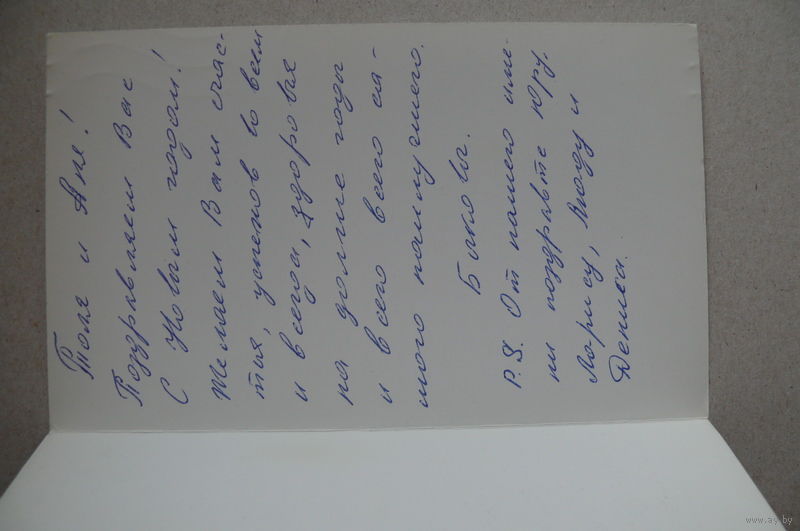 Толя и Аня!
Поздравляем Вас
С Новым годом!
Желаем Вам счас-
тья, успехов во всем
и всегда, здоровья
на долгие годы
и всего всего са-
мого наилучшего.
P.S. От нашего име-
ни поздравьте Юру,
Ларису, Люду и
Дениса.
www.ay.by